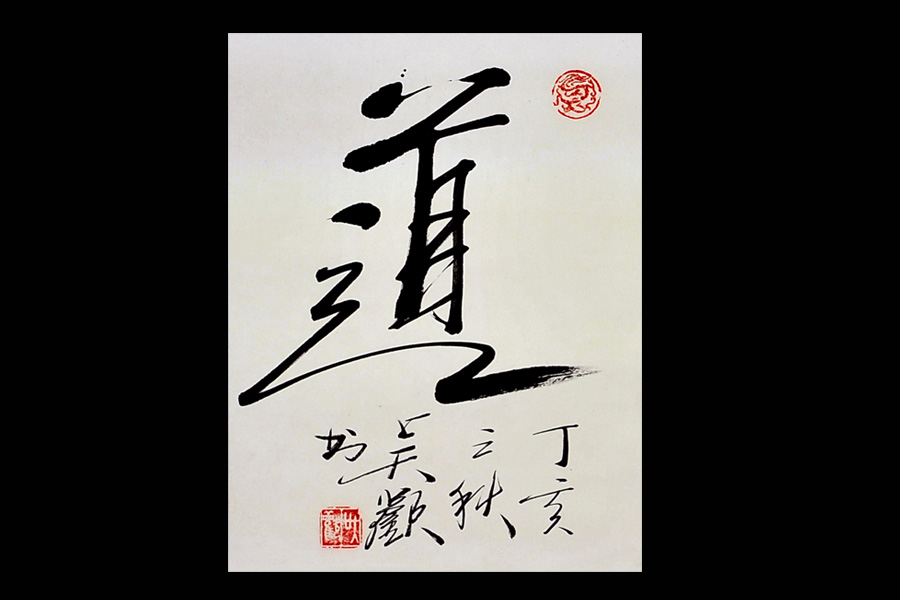 道
丁亥
之秋
吴歡
书